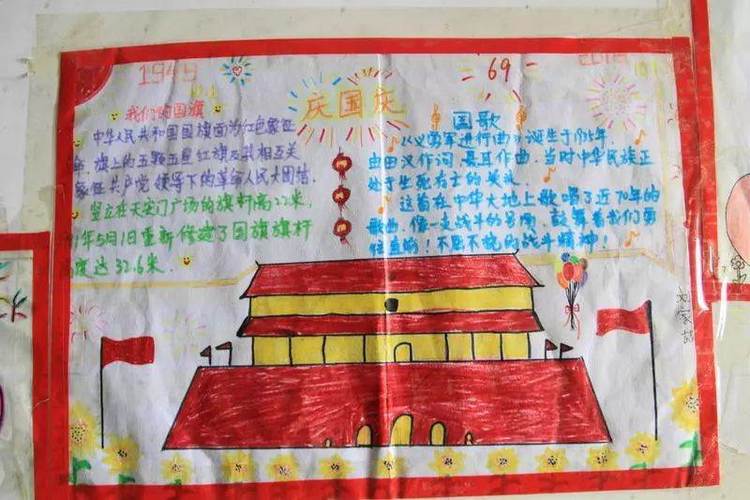 1949
69
我们的国旗
庆国庆
国歌
中华人民共和国国旗旗面为红色象征
旗上的五颗五星红旗及其相互关
象征共产党领导下的革命人民大团结.
竖立在天安门广场的旗杆高22米,
1年5月1日重新修建了国旗旗杆
度达32.6米.
《义勇军进行曲》诞生于19 年.
由田汉作词、聂耳作曲.当时中华民族正
处于生死存亡的关头.
这首在中华大地上歌唱了近70年的
歌曲.像一支战斗的号角鼓舞着我们勇
往直前!不屈不挠的战斗精神!